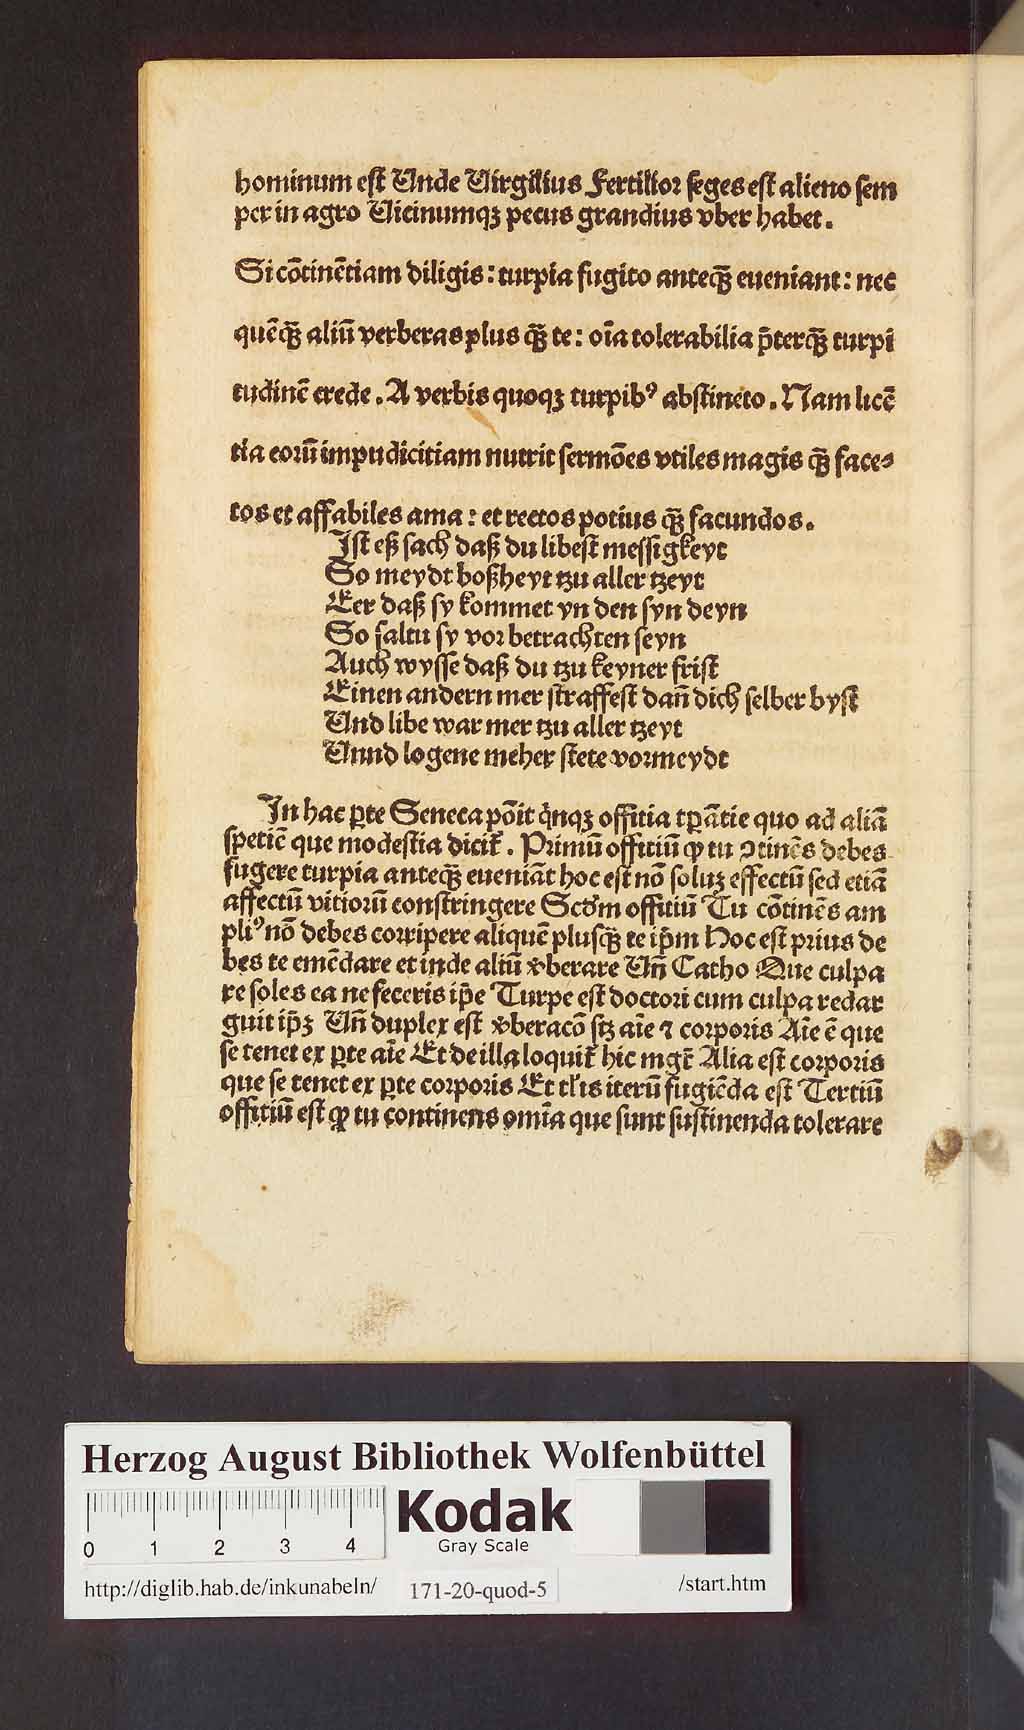 hominum est Unde Virgilius Fertilior seges est alieno sem
per in agro Vicinumqꝫ pecus grandius vber habet.
Si cõtinẽtiam diligis: turpia fugito anteqꝫ̃ eueniant: nec
quẽqꝫ̃ aliũ verberas plus qꝫ̃ te: oĩa tolerabilia p̃terqꝫ̃ turpi
tudinẽ crede. A verbis quoqꝫ turpibꝰ abstineto. Nam licẽ
tia eorũ impudicitiam nutrit sermões vtiles magis qꝫ̃ face⸗
tos et affabiles ama: et rectos potius qꝫ̃ facundos.
Ist eß sach daß du libest messigkeyt
So meydt boßheyt tzu aller tzeyt
Eer daß sy kommet yn den syn deyn
So saltu sy vor betrachten seyn
Auch wysse daß du tzu keyner frist
Einen andern mer straffest dañ dich selber byst
Und libe war mer tzu aller tzeyt
Unnd logene meher stete vormeydt
In hac ꝑte Seneca põit q̃nqꝫ offitia tꝑãtie quo ad aliã
spetiẽ que modestia dicit̃. Primũ offitiũ ꝙ tu ꝯtinẽs debes
fugere turpia anteqꝫ̃ eueniãt hoc est nõ soluꝫ effectũ sed etiã
affectũ vitiorũ constringere Scd̃m offitiũ Tu cõtinẽs am
pliꝰ nõ debes corripere aliquẽ plusqꝫ̃ te ip̃m Hoc est prius de
bes te emẽdare et inde aliũ v̓berare Uñ Catho Que culpa
re soles ea ne feceris ip̃e Turpe est doctori cum culpa redar
guit ip̃ꝫ Uñ duplex est v̓beracõ sꝫ aĩe ⁊ corporis Aĩe ẽ que
se tenet ex ꝑte aĩe Et de illa loquit̃ hic mgr̃ Alia est corporis
que se tenet ex ꝑte corporis Et tl̃is iterũ fugiẽda est Tertiũ
offitiũ est ꝙ tu continens omĩa que sunt sustinenda tolerare
Herzog August Bibliothek Wolfenbüttel
0 1 2 3 4
Kodak
Gray Scale
http://diglib.hab.de/inkunabeln/ 171-20-quod-5 /start.htm